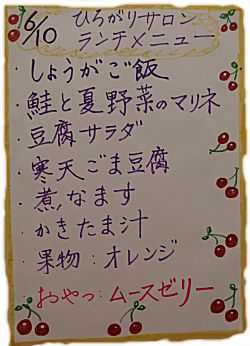 6/10 ひろがりサロン
ランチメニュー
・しょうがご飯
・鮭と夏野菜のマリネ
・豆腐サラダ
・寒天ごま豆腐
・煮なます
・かきたま汁
・果物:オレンジ
おやつ:ムースゼリー